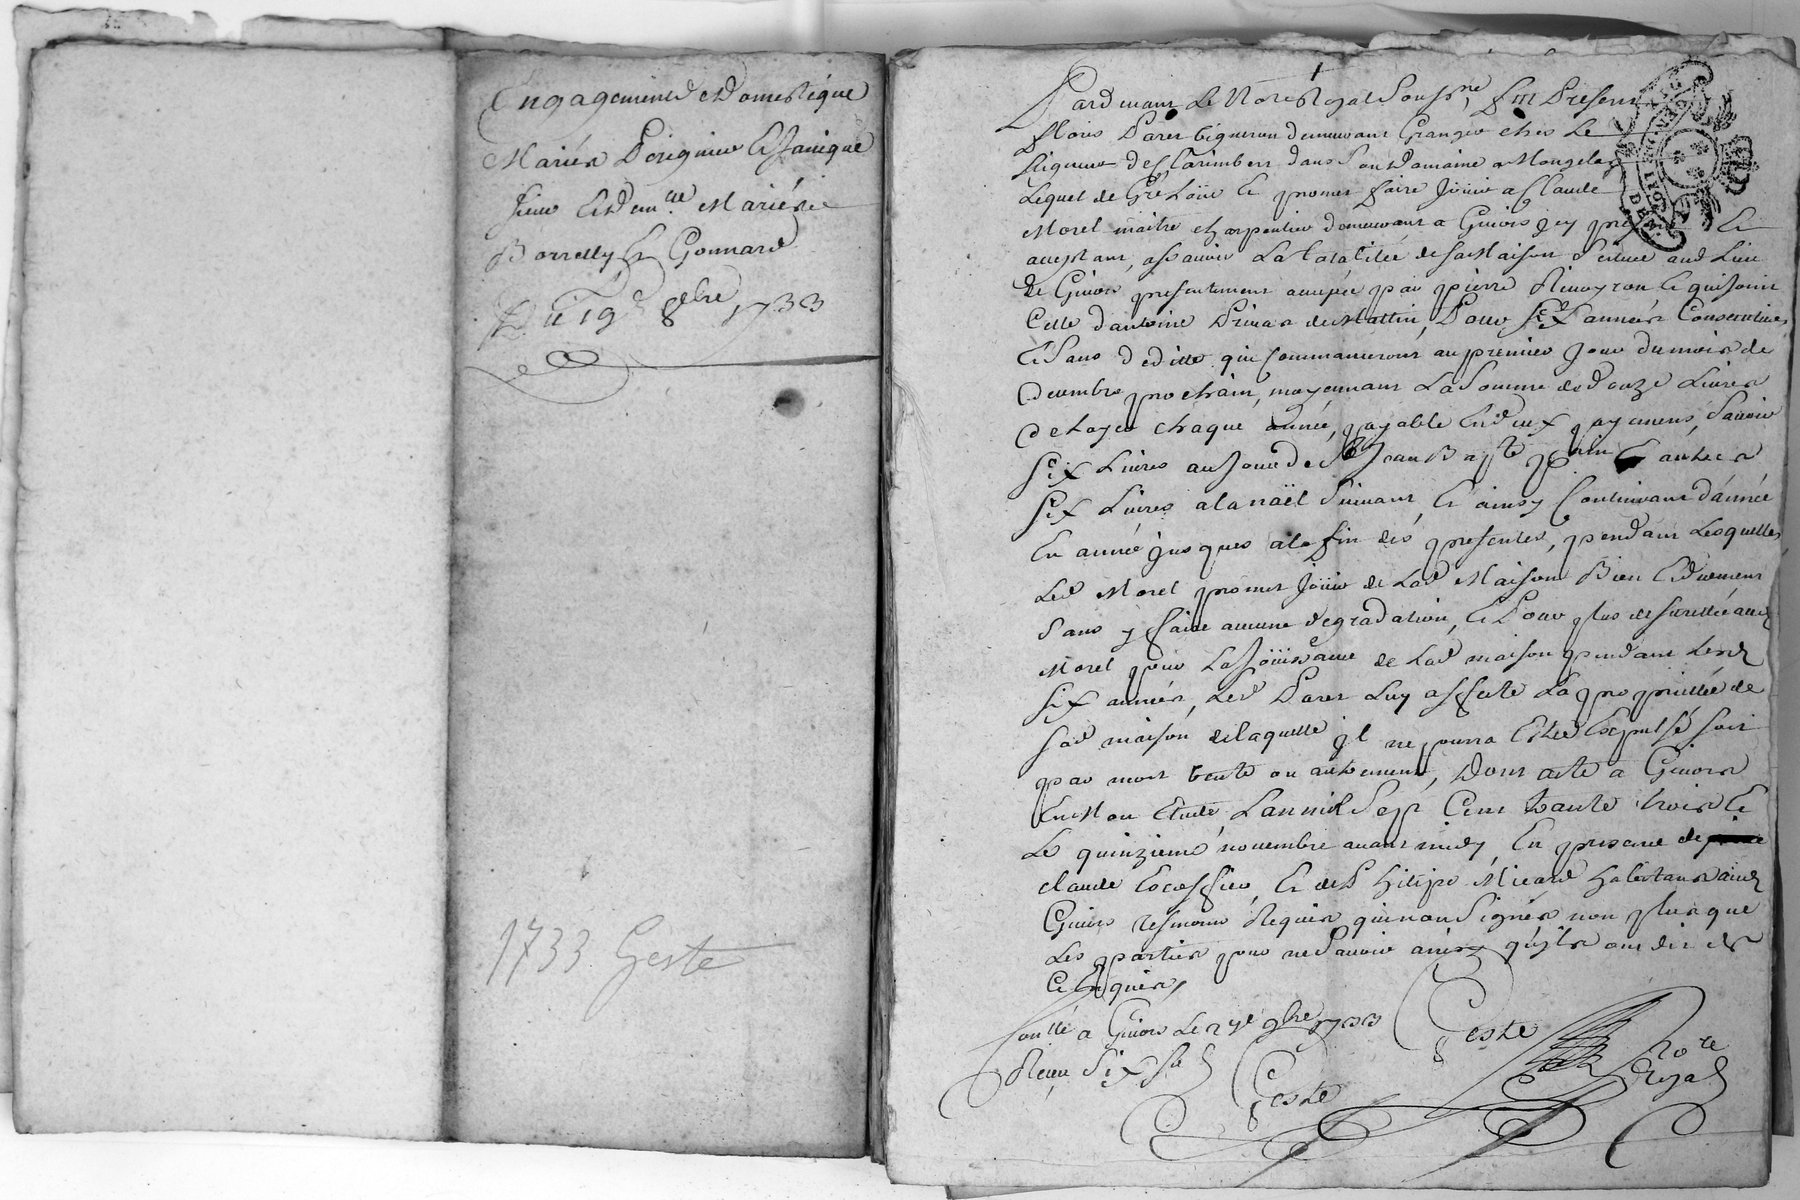 Engagement et Domestique
Mariés Perignier et Janique
sieur et dem.lle Mariésie
Borrelly et Gonnard
Du 19e 8bre 1733
1733 Geste
Pardevant Le No.re Royal Sous.né, fut Present
Denis Paret vigneron demeurant Granger ches Le
seigneur des Tarimbert dans son Domaine a Mongelas
Lequel de Gré Loüe et promet faire Joüir a Claude
Morel maitre charpentier demeurant a Givors icy present Et
acceptant, assavoir La totalitée de sa Maison scituée aud Lieu
de Givors presentement occupée par pierre Rivoyron et qui joint
Celle d'antoine Primat de Matin, Pour six années Consecutives
Et sans deditte qui Commanceront au premier Jour du mois de
Decembre prochain, moyennant La somme de douze Livres
De Loyer chaque année, payable En deux payemens, sçavoir
six Livres au Jour de St Jean Bapte prochain Et autres
six Livres a la naël suivant, Et ainsy Continuant d'année
En année jusques a la fin des presentes, pendant Lesquelles
Led Morel promet Joüir de Lad Maison Bien Et duement
sans y faire aucune degradation, Et Pour plus de surettée aud
Morel pour La Joüissance de Lad maison pendant Lesd
six années, Led Paret Luy affecte La proprietée de
sad maison de laquelle jl ne pourra Estre Expulsé soit
par mort vente ou autrement, Dont acte a Givors
En Mon Etude, L'an mil Sept Cent trante trois Et
Le quinzieme novembre avant midy En presence de
claude Escoffier, Et de Philipe Micard habitants aud
Givors tesmoins Requis qui n'ont Signés non plus que
Les parties pour ne sçavoir ainsy qu'jls ont dit de
Ce Enquis,
Con.llé a Givors Le 27e 9bre 1733
Receu Six sols
Geste
Geste
No.re
Royal